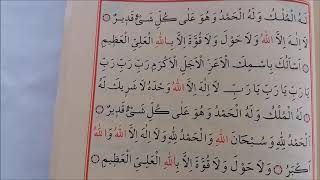 لَهُ الْمُلْكُ وَلَهُ الْحَمْدُ وَهُوَ عَلٰى كُلِّ شَىْءٍ قَدِيرٌ ۞
لَا اِلٰهَ اِلَّا اللهُ وَلَا حَوْلَ وَلَا قُوَّةَ اِلَّا بِاللهِ الْعَلِىِّ الْعَظِيمِ
اَسْاَلُكَ بِاسْمِكَ الْاَعَزِّ الْاَجَلِّ الْاَكْرَمِ رَبِّ رَبِّ رَبِّ
يَا رَبِّ يَا رَبِّ يَا رَبِّ لَا اِلٰهَ اِلَّا اللهُ وَحْدَهُ لَا شَرِيكَ لَهُ
لَهُ الْمُلْكُ وَلَهُ الْحَمْدُ وَهُوَ عَلٰى كُلِّ شَىْءٍ قَدِيرٌ ۞
اَلْحَمْدُ لِلّٰهِ وَسُبْحَانَ اللهِ وَالْحَمْدُ لِلّٰهِ وَلَا اِلٰهَ اِلَّا اللهُ وَاللهُ
اَكْبَرُ ۞ وَلَا حَوْلَ وَلَا قُوَّةَ اِلَّا بِاللهِ الْعَلِىِّ الْعَظِيمِ ۞